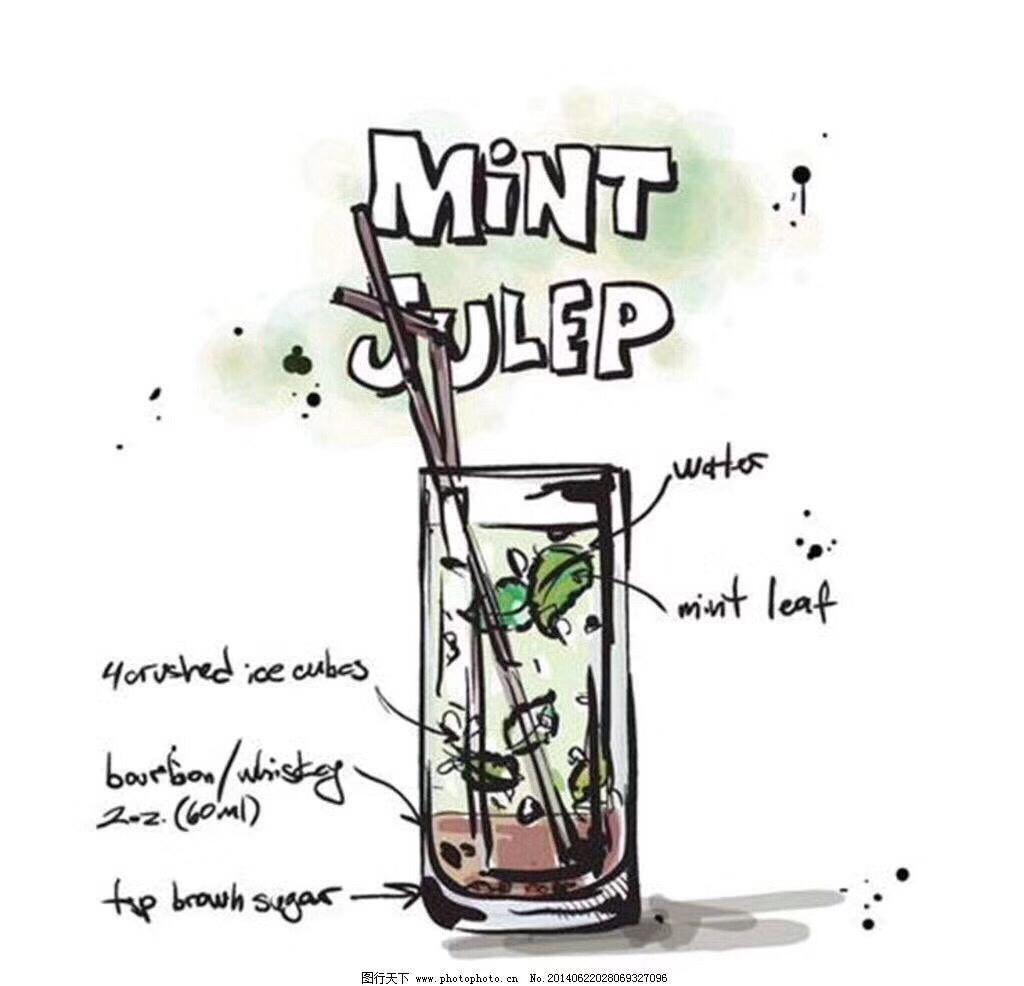 MiNT
JULEP
water
mint leaf
4 crushed ice cubes
bourbon/whiskey
2oz. (60ml)
tsp brown sugar
图行天下 www.photophoto.cn No.20140622028069327096